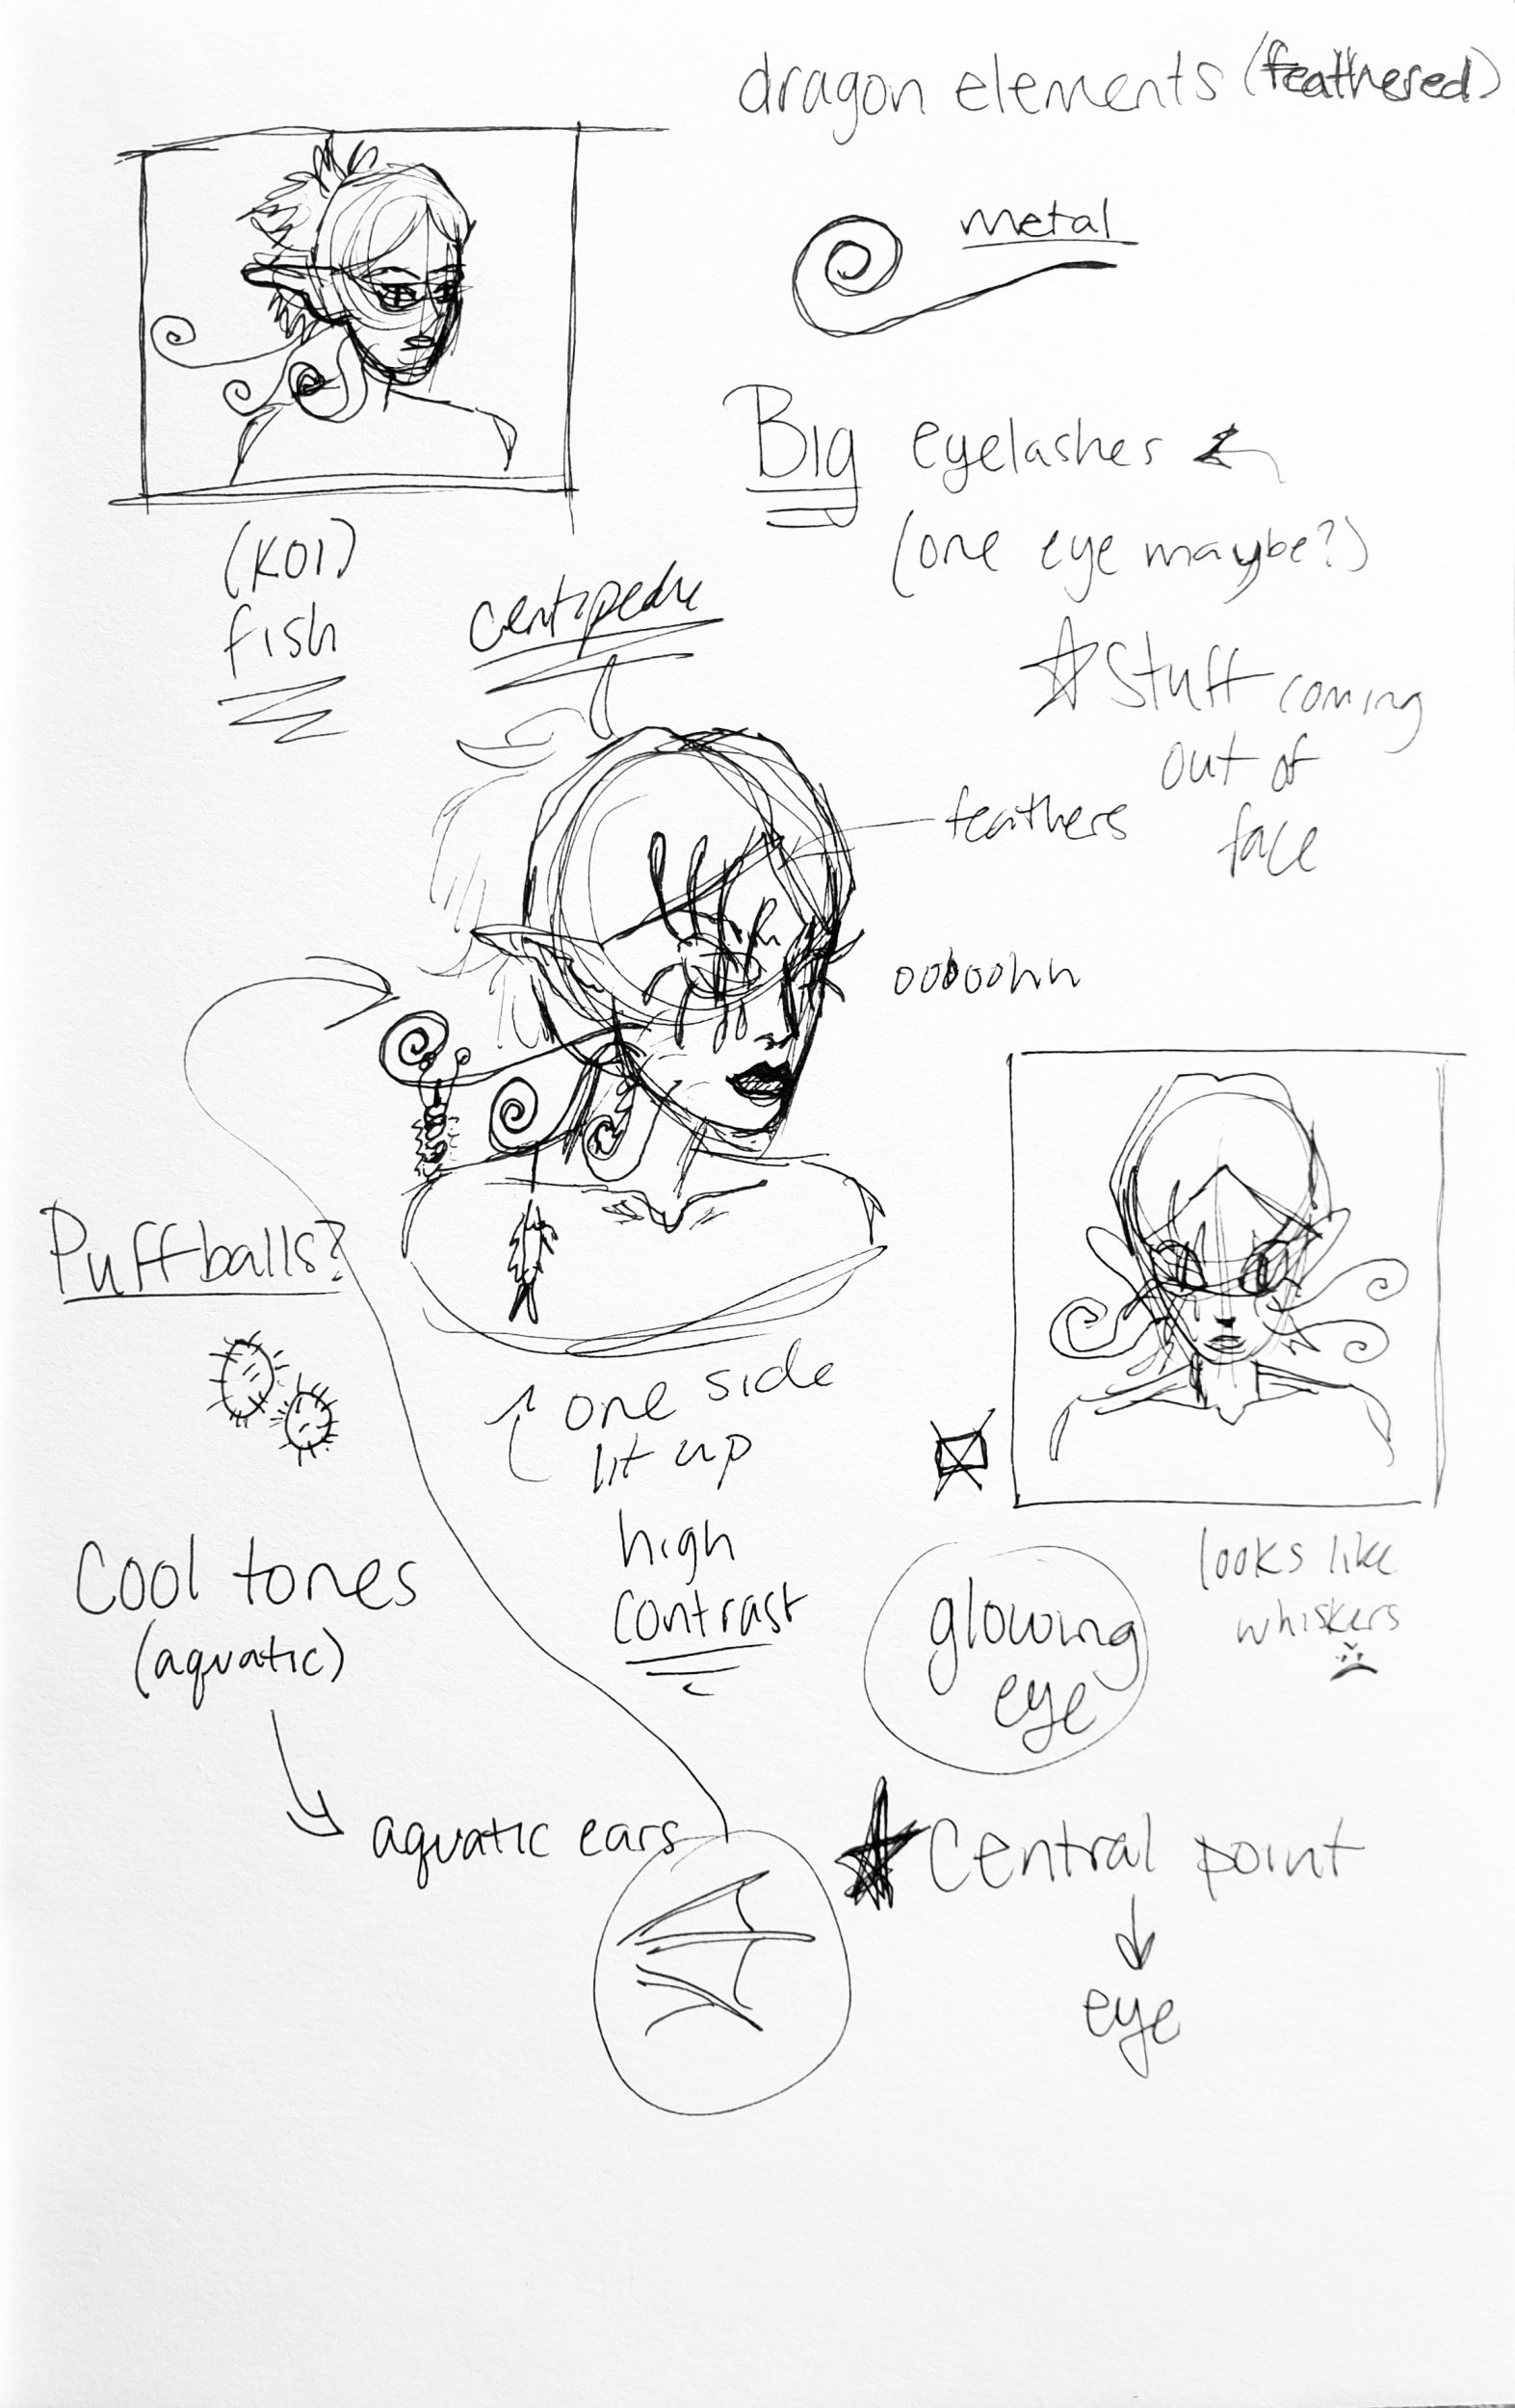 dragon elements (feathered)
metal
Big eyelashes
(one eye maybe?)
(KOI)
fish
centipede
☆ Stuff coming
out of
face
feathers
ooboohh
Puffballs?
one side
lit up
high
contrast
looks like
whiskers
Cool tones
(aquatic)
glowing
eye
aquatic ears
★ Central point
eye